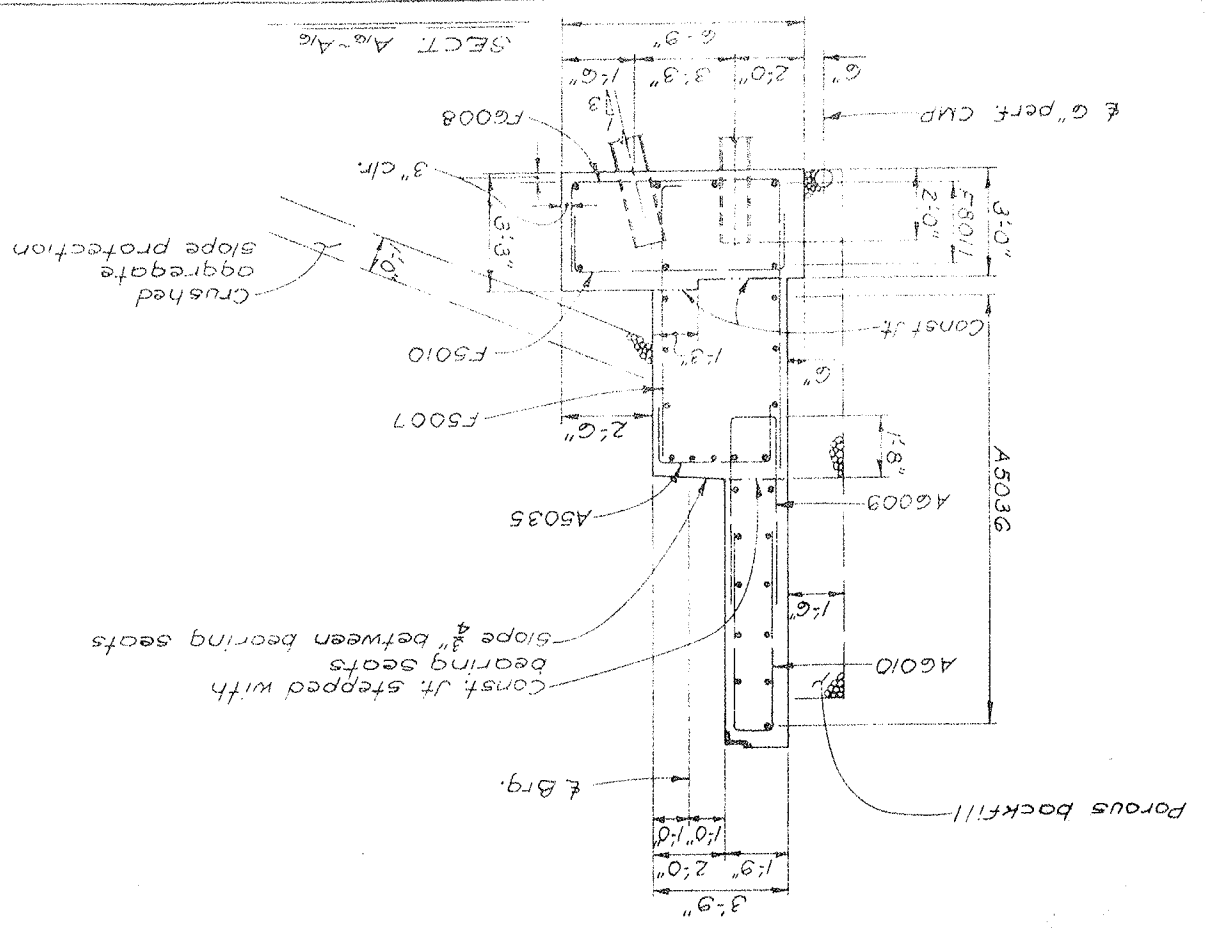 3'-9"
1'-9" 2'-0"
1'-0" 1'-0"
Porous backfill
℄ Brg.
A6010
Const. Jt. stepped with
bearing seats
Slope 3/4" between bearing seats
1'-6"
A5036
A6009
A5035
1'-8"
2'-6"
F5007
6"
1'-3"
F5010
Const Jt.
Crushed
aggregate
slope protection
1'-0"
3'-0"
F8011
2'-0"
3'-3"
3" clr.
F6008
℄ 6" perf. CMP
6"
2'-0" 3'-3" 1'-6"
1
3
6'-9"
SECT. A16-A16